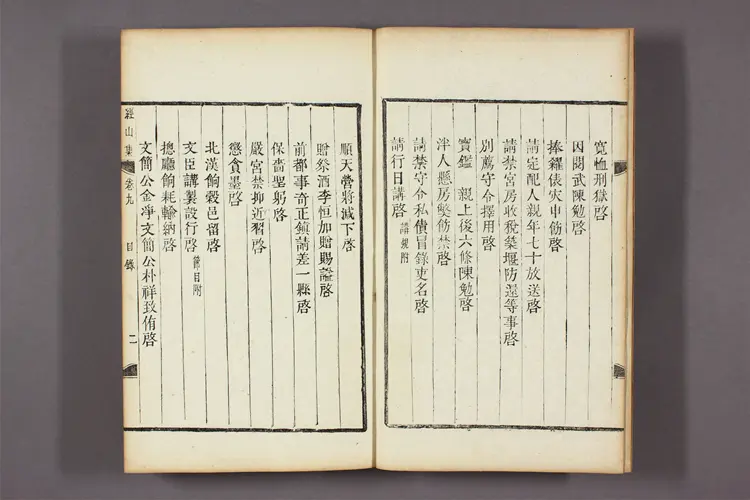 寬恤刑獄啓
因閱武陳勉啓
捧糴俵灾申飭啓
請定配人親年七十放送啓
請禁宮房收稅築堰防還等事啓
別薦守令擇用啓
寶鑑 親上後六條陳勉啓
泮人懸房弊飭禁啓
請禁守令私債冒錄吏名啓
請行日講啓 講規附
順天營將減下啓
贈祭酒李恒加贈賜謚啓
前都事奇正鎭請差一縣啓
保嗇聖躬啓
嚴宮禁抑近習啓
懲貪墨啓
北漢餉穀邑留啓
文臣講製設行啓 節目附
摠廳餉耗輸納啓
文簡公金凈文簡公朴祥致侑啓
經山集 卷九 目錄 二